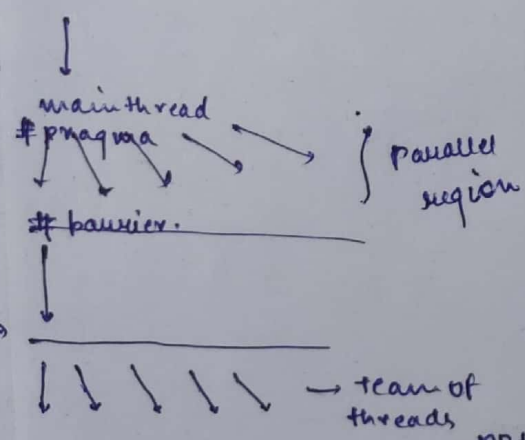 main thread
# pragma
parallel
region
# barrier.
→ team of
threads